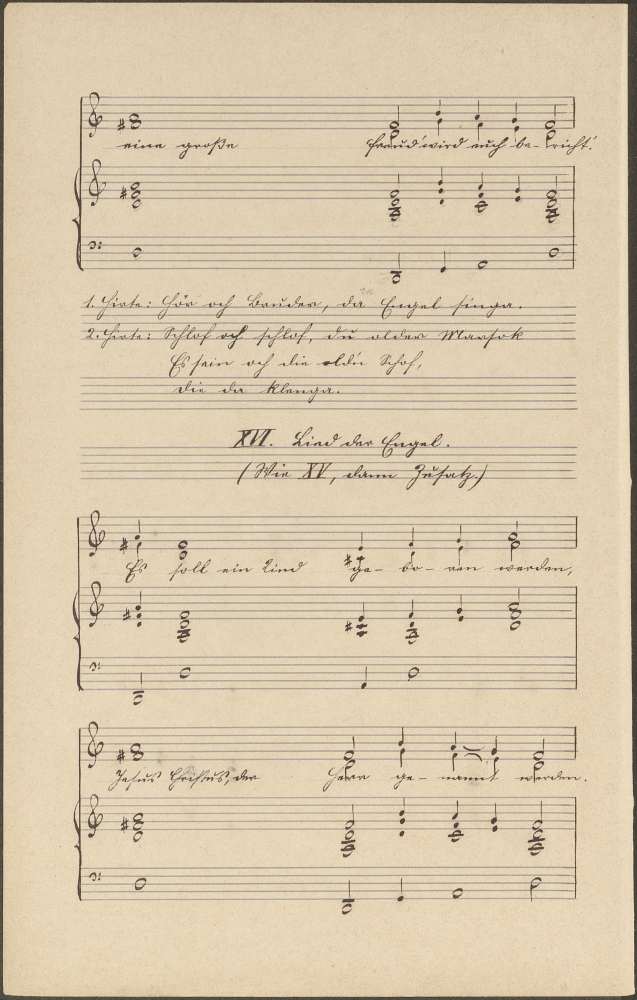 eine große Freud' wird euch be- richt'.
1. Hirte: Hör och Bruder, di Engel singa.
2. Hirte: Schlof och schlof, du older Marsok
Es sein och die old'n Schof,
die da klenga.
XVI. Lied der Engel.
(Wie XV, dann Zusatz.)
Es soll ein Kind ge- bo- ren werden,
Jesus Christus der Herr ge- nannt werden.